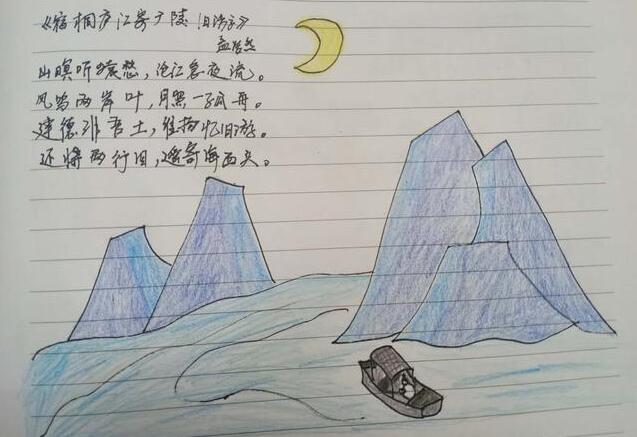 《宿桐庐江寄广陵旧游》
孟浩然
山暝听猿愁，沧江急夜流。
风鸣两岸叶，月照一孤舟。
建德非吾土，维扬忆旧游。
还将两行泪，遥寄海西头。